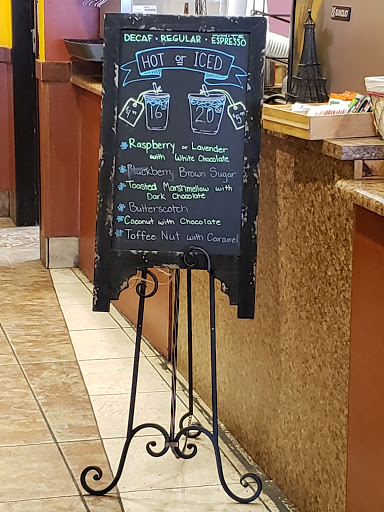 DECAF • REGULAR • ESPRESSO
HOT or ICED
16 20
Raspberry or Lavender
with White Chocolate
Blackberry Brown Sugar
Toasted Marshmellow with
Dark Chocolate
Butterscotch
Coconut with Chocolate
Toffee Nut with Caramel